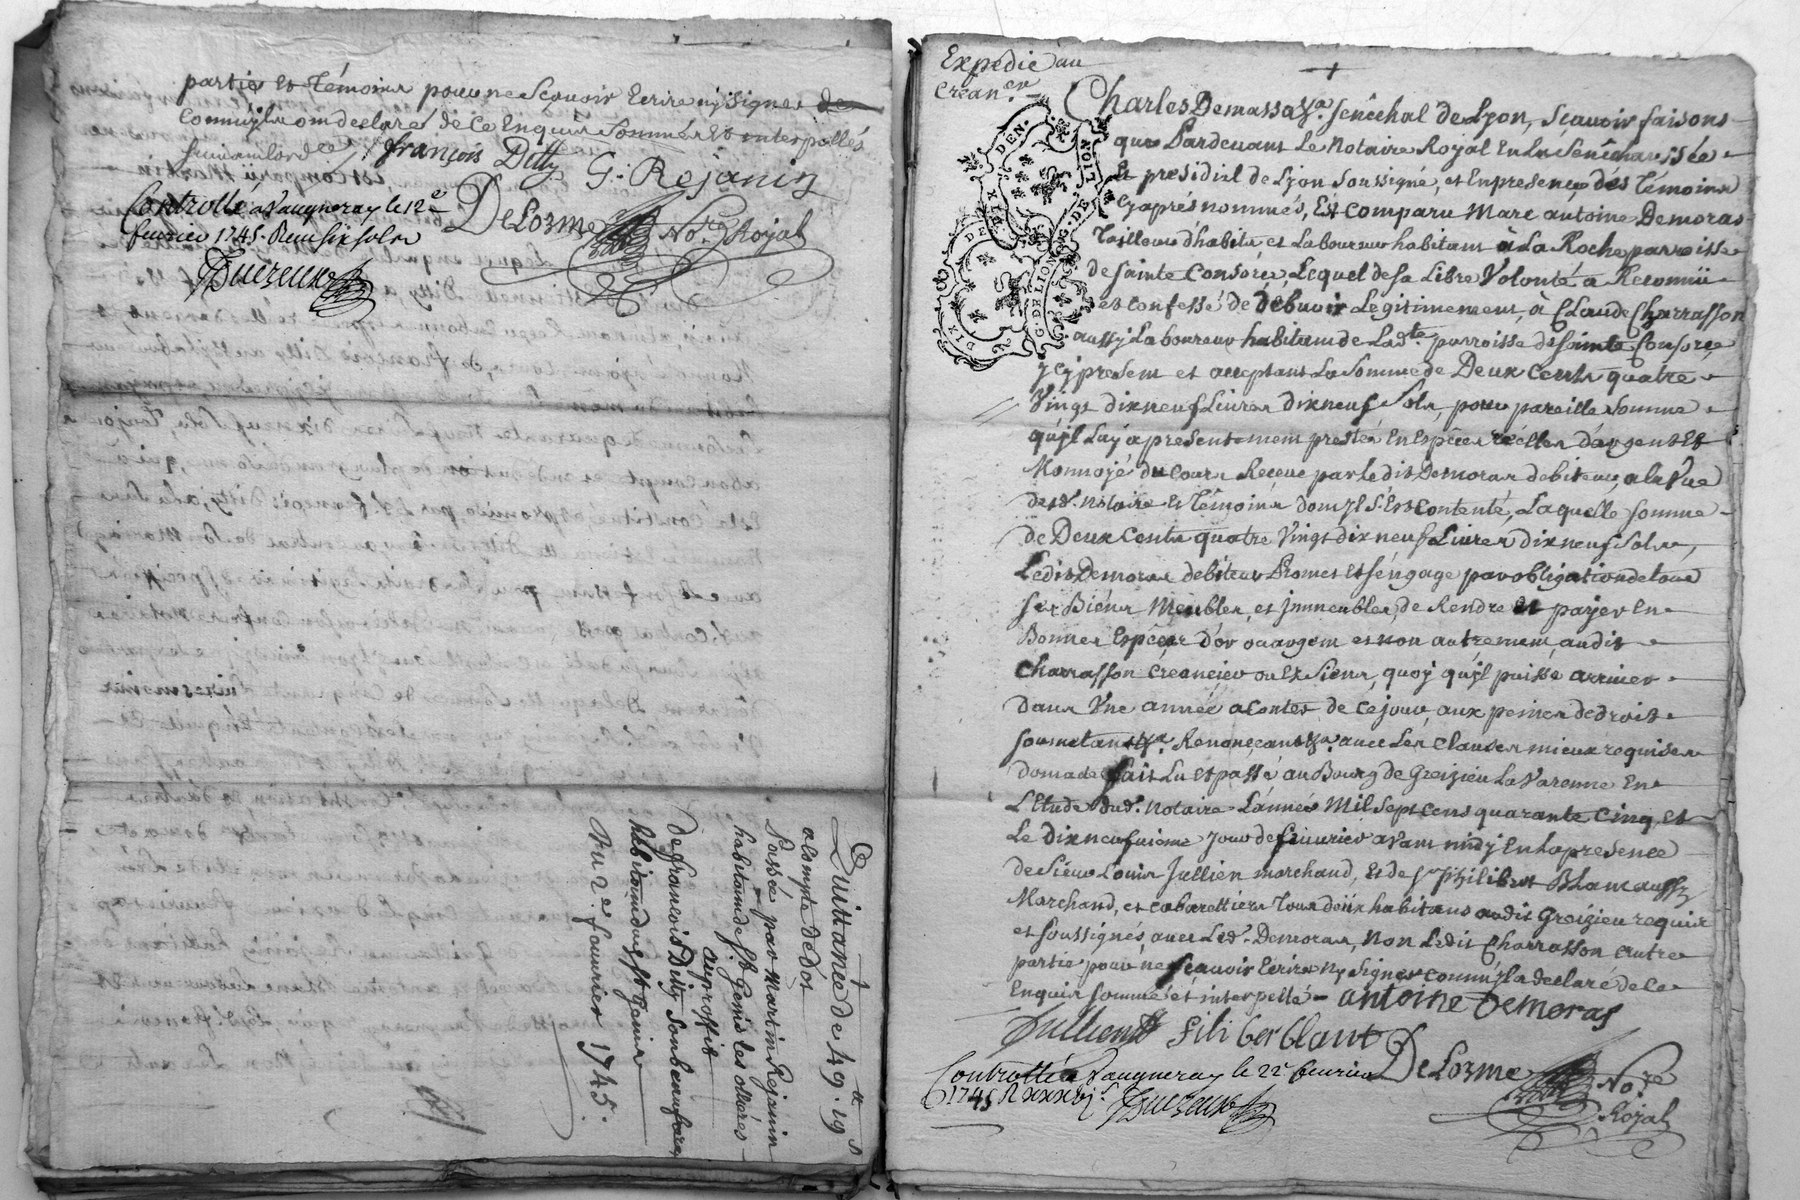 partie et témoins pour ne scavoir Ecrire ny signer de
Ce enquis sommés et interpellés
françois Ditty G. Rejanin
Controllé a Vaugneray le 12e
DeLorme Nore Royal
feuvrier 1745. Reçu six sols
Quittance de 49 tt 19 s
a compte de dot
Passée par Martin Rejanin
habitant de st Genis les ollières
au proffit
de francois Ditty son beaufrere,
habitant dud. st Genis
Du 2e feuvrier 1745.
Expedié au
Crean.er
Charles Demassa &a. Senéchal de Lyon, Scavoir faisons
que Pardevant Le Notaire Royal En La Senéchaussée
Et presidial de Lyon soussigné, et En presence des Témoins
Cy après nommés, Est Comparu Marc antoine Demoras
Tailleur d'habits et Laboureur habitant à La Roche parroisse
de sainte Consorce, Lequel de sa Libre Volonté a Reconnu
et confessé de debuoir Legitimement, à Claude Charrasson
aussy Laboureur habitant de Lad.te parroisse de sainte Consorce,
y cy present et acceptant La somme de Deux Cents quatre
Vingt dix neuf Livres dix neuf sols, pour pareille somme
qu'jl Luy a presentement prestée En Espèces réelles d'argent Et
Monnoyé du cours Receue par Ledit Demoras debiteur, a la Vue
desd. Notaire Et Témoins dont jl s'Est Contenté, Laquelle somme
de Deux Cents quatre Vingt dix neuf Livres dix neuf sols,
Ledit Demoras debiteur Promet Et s'engage par obligation de tous
ses Biéns Meubles, et jmmeubles, de Rendre Et payer En
Bonnes Espèces d'or ou argent et non autrement, audit
Charrasson Creancier ou Es Siens, quoy qu'jl puisse arriver
Dans Vne année a Conter de ce jour, aux peines de droit
soumetant &a. Renonçant &a. avec Les Clauses mieux requises
fait Lu Et passé au Bourg de Greizieu La Varenne En
L'Etude dud. Notaire L'année Mil Sept Cens quarante Cinq, Et
Le dix neufuieme jour de feuurier avant midy En La presence
de Sieur Louis Jullien marchand, Et de sr philibert Blanc aussy
Marchand, et Cabarettiers Tous deux habitans audit Greizieu requis
et soussignés, avec Led. Demoras, Non Ledit Charrasson autre
partie pour ne scauoir Ecrire ny signer comme jl a declaré de ce
Enquis sommé et interpellé antoine Demoras
Jullien filiber blanc
DeLorme Nore
Royal
Controllé a Vaugneray le 22e feurier
1745 R xxxvj s